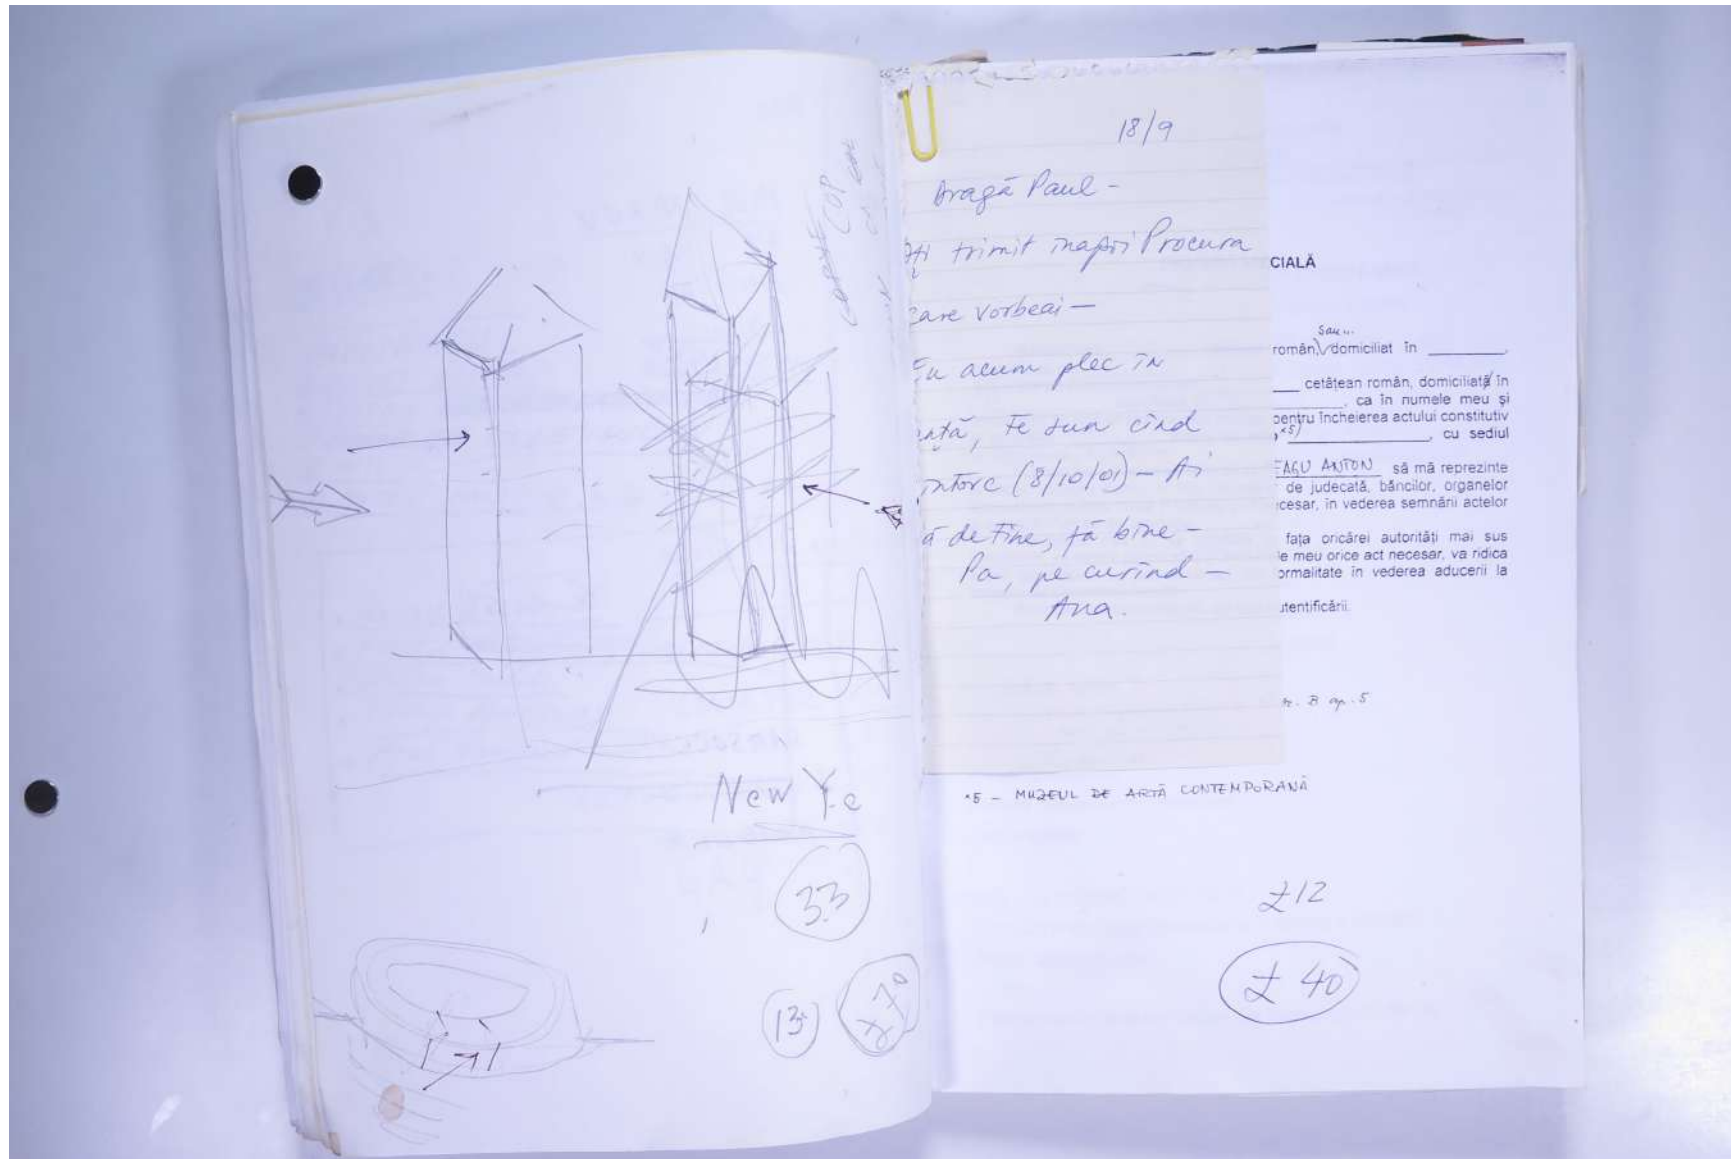 COP
New Y.c
33
13
£70
18/9
Dragă Paul -
Îți trimit înapoi Procura
care vorbeai —
Eu acum plec în
Te sun cînd
întorc (8/10/01) — Ai
de Tine, fă bine -
Pa, pe curînd —
Ana.
CIALĂ
sau
român, domiciliat în ________,
____ cetățean român, domiciliată în
________, ca în numele meu și
pentru încheierea actului constitutiv
*5) ________, cu sediul
EAGU ANTON să mă reprezinte
de judecată, băncilor, organelor
cesar, în vederea semnării actelor
fața oricărei autorități mai sus
le meu orice act necesar, va ridica
ormalitate în vederea aducerii la
utentificării.
B ap. 5
*5 - MUZEUL DE ARTĂ CONTEMPORANĂ
£12
£ 40